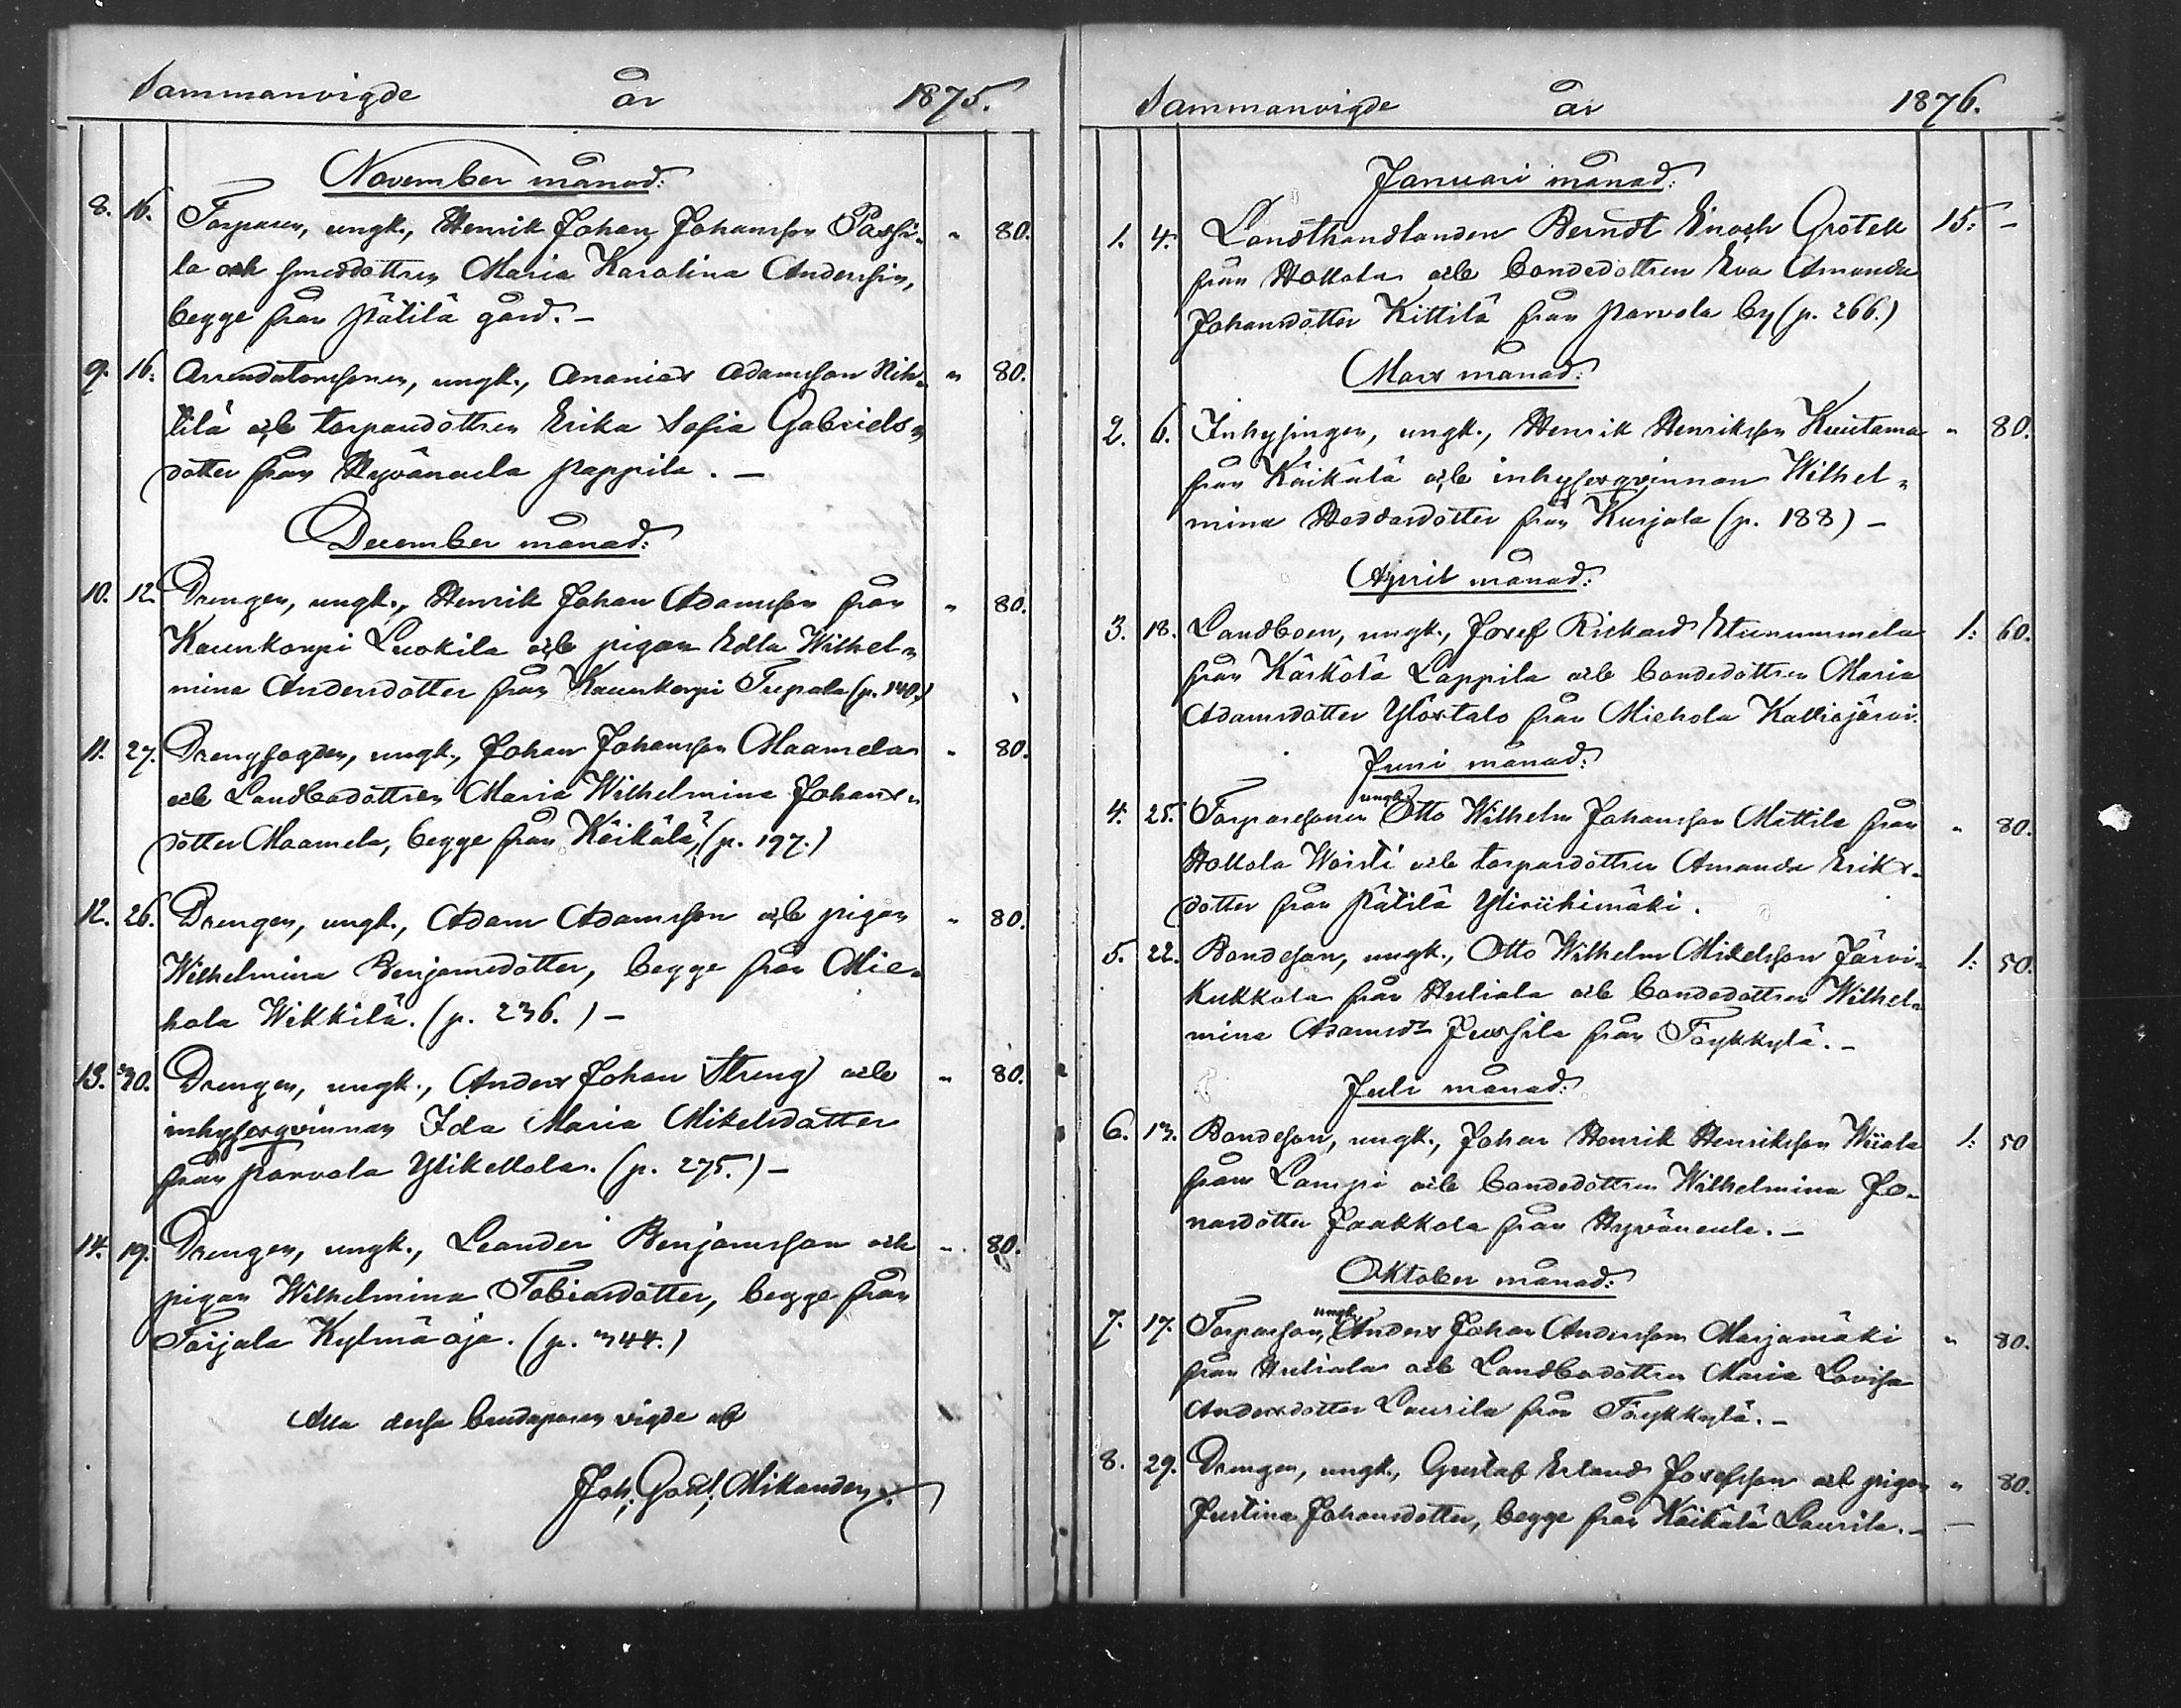 Sammanvigde år 1875.
November månad:
8. 16. Torparen, ungk., Henrik Johan Johansson Passi- " 80.
la och smeddottren Maria Karolina Andersin,
begge från Pätilä gård. –
9. 16. Arrendatorssonen, ungk., Ananias Adamsson Nih- " 80.
tilä och torparedottren Erika Sofia Gabriels-
dotter från Hyväneula Pappila. –
December månad:
10. 12. Drengen, ungk., Henrik Johan Adamsson från " 80.
Kaunkorpi Luokila och pigan Edla Wilhel-
mina Andersdotter från Kaunkorpi Tupala (p. 140.)
11. 27. Drengfogden, ungk., Johan Johansson Maamela " 80.
och Landbodottren Maria Wilhelmina Johans-
dotter Maamela, begge från Käikälä, (p. 197.)
12. 26. Drengen, ungk., Adam Adamsson och pigan " 80.
Wilhelmina Benjamsdotter, begge från Mie-
hola Wikkilä. (p. 236.) –
13. 30. Drengen, ungk., Anders Johan Streng och " 80.
inhysesqvinnan Ida Maria Mikelsdotter
från Parvola Ylikellola. (p. 275.) –
14. 19. Drengen, ungk., Leander Benjamsson och " 80.
pigan Wilhelmina Tobiasdotter, begge från
Toijala Kylmäoja. (p. 344.)
Alla dessa brudparen vigde af
Joh: Gott: Mikander
Sammanvigde år 1876.
Januari månad:
1. 4. Landthandlanden Berndt Enoch Grotell 15: –
från Hollola och bondedottren Eva Amanda
Johansdotter Kittilä från Parvola by (p. 266.)
Mars månad:
2. 6. Inhysingen, ungk., Henrik Henriksson Kuutama " 80.
från Käikälä och inhysesqvinnan Wilhel-
mina Heddasdotter från Kurjala (p. 188) –
April månad:
3. 18. Landboen, ungk., Josef Rickard Etunummela 1: 60.
från Kärkölä Lappila och bondedottren Maria
Adamsdotter Ylöstalo från Miehola Kalliojärvi.
Juni månad:
ungk.
4. 25. Torparesonen Otto Wilhelm Johansson Mattila från " 80.
Hollola Woisti och torparedottren Amanda Eriks-
dotter från Pätilä Yliriihimäki.
5. 22. Bondeson, ungk., Otto Wilhelm Mikelsson Järvi- 1: 50.
kukkola från Huljala och bondedottren Wilhel-
mina Adamsdr Jussila från Töykkylä. –
Juli månad:
6. 13. Bondeson, ungk., Johan Henrik Henriksson Wiiala 1: 50
från Lampi och bondedottren Wilhelmina Jo-
nasdotter Jaakkola från Hyväneula. –
Oktober månad:
ungk.
7. 17. Torpareson, Anders Johan Andersson Marjamäki " 80.
från Huljala och Landbodottren Maria Lovisa
Andersdotter Laurila från Töykkylä. –
8. 29. Drengen, ungk., Gustaf Erland Josefsson och pigan " 80.
Justina Johansdotter, begge från Käikälä Laurila. –